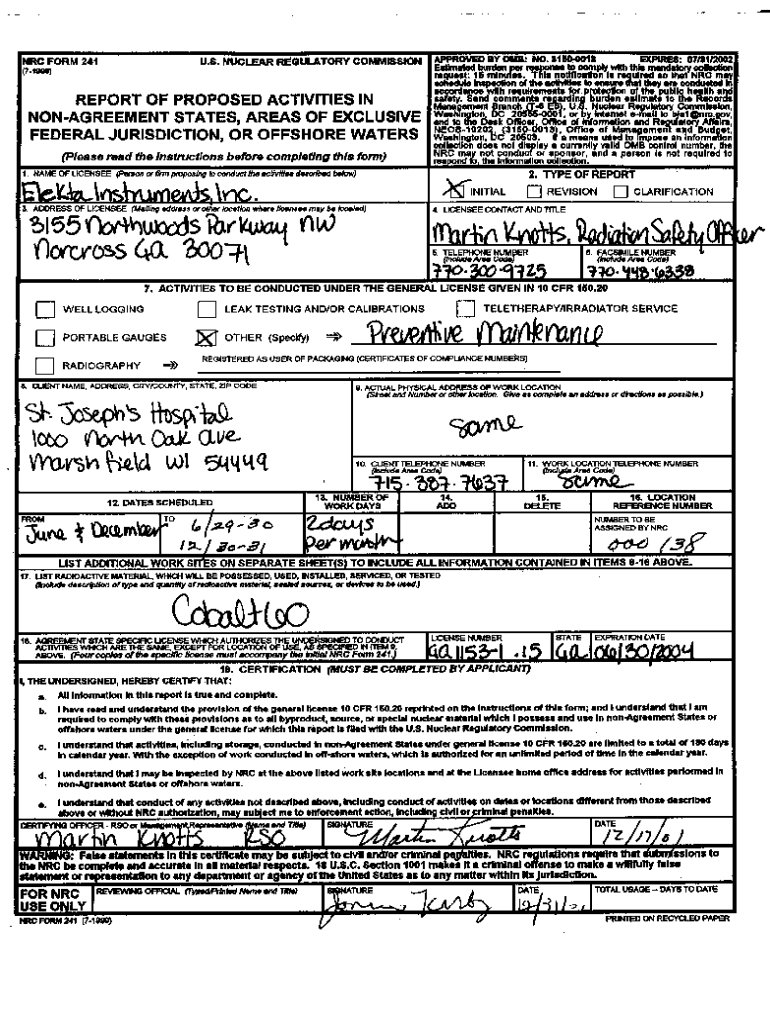 NRC FORM 241
(7-1999)
U.S. NUCLEAR REGULATORY COMMISSION
REPORT OF PROPOSED ACTIVITIES IN
NON-AGREEMENT STATES, AREAS OF EXCLUSIVE
FEDERAL JURISDICTION, OR OFFSHORE WATERS
(Please read the instructions before completing this form)
APPROVED BY OMB: NO. 3150-0013 EXPIRES: 07/31/2002
Estimated burden per response to comply with this mandatory collection
request: 15 minutes. This notification is required so that NRC may
schedule inspection of the activities to ensure that they are conducted in
accordance with requirements for protection of the public health and
safety. Send comments regarding burden estimate to the Records
Management Branch (T-6 E6), U.S. Nuclear Regulatory Commission,
Washington, DC 20555-0001, or by internet e-mail to bjs1@nrc.gov,
and to the Desk Officer, Office of Information and Regulatory Affairs,
NEOB-10202, (3150-0013), Office of Management and Budget,
Washington, DC 20503. If a means used to impose an information
collection does not display a currently valid OMB control number, the
NRC may not conduct or sponsor, and a person is not required to
respond to, the information collection.
1. NAME OF LICENSEE (Person or firm proposing to conduct the activities described below)
Elekta Instruments, Inc.
2. TYPE OF REPORT
X INITIAL REVISION CLARIFICATION
3. ADDRESS OF LICENSEE (Mailing address or other location where licensee may be located)
3155 Northwoods Parkway NW
Norcross GA 30071
4. LICENSEE CONTACT AND TITLE
Martin Knotts, Radiation Safety Officer
5. TELEPHONE NUMBER
(Include Area Code)
770-300-9725
6. FACSIMILE NUMBER
(Include Area Code)
770-448-6338
7. ACTIVITIES TO BE CONDUCTED UNDER THE GENERAL LICENSE GIVEN IN 10 CFR 150.20
WELL LOGGING
LEAK TESTING AND/OR CALIBRATIONS
TELETHERAPY/IRRADIATOR SERVICE
PORTABLE GAUGES
X OTHER (Specify) Preventive Maintenance
RADIOGRAPHY
REGISTERED AS USER OF PACKAGING (CERTIFICATES OF COMPLIANCE NUMBERS)
8. CLIENT NAME, ADDRESS, CITY/COUNTY, STATE, ZIP CODE
St. Joseph's Hospital
1000 North Oak Ave
Marshfield WI 54449
9. ACTUAL PHYSICAL ADDRESS OF WORK LOCATION
(Street and Number or other location. Give as complete an address or directions as possible.)
Same
10. CLIENT TELEPHONE NUMBER
(Include Area Code)
715-387-7637
11. WORK LOCATION TELEPHONE NUMBER
(Include Area Code)
Same
12. DATES SCHEDULED
FROM
June & December
TO
6/29-30
12/30-31
13. NUMBER OF
WORK DAYS
2 days
per month
14.
ADD
15.
DELETE
16. LOCATION
REFERENCE NUMBER
NUMBER TO BE
ASSIGNED BY NRC
000138
LIST ADDITIONAL WORK SITES ON SEPARATE SHEET(S) TO INCLUDE ALL INFORMATION CONTAINED IN ITEMS 8-16 ABOVE.
17. LIST RADIOACTIVE MATERIAL, WHICH WILL BE POSSESSED, USED, INSTALLED, SERVICED, OR TESTED
(Include description of type and quantity of radioactive material, sealed sources, or devices to be used.)
Cobalt 60
18. AGREEMENT STATE SPECIFIC LICENSE WHICH AUTHORIZES THE UNDERSIGNED TO CONDUCT
ACTIVITIES WHICH ARE THE SAME, EXCEPT FOR LOCATION OF USE, AS SPECIFIED IN ITEM 9,
ABOVE. (Four copies of the specific license must accompany the initial NRC Form 241.)
LICENSE NUMBER
GA 1153-1 .15
STATE
GA
EXPIRATION DATE
06/30/2004
19. CERTIFICATION (MUST BE COMPLETED BY APPLICANT)
I, THE UNDERSIGNED, HEREBY CERTIFY THAT:
a. All information in this report is true and complete.
b. I have read and understand the provision of the general license 10 CFR 150.20 reprinted on the instructions of this form; and I understand that I am
required to comply with these provisions as to all byproduct, source, or special nuclear material which I possess and use in non-Agreement States or
offshore waters under the general license for which this report is filed with the U.S. Nuclear Regulatory Commission.
c. I understand that activities, including storage, conducted in non-Agreement States under general license 10 CFR 150.20 are limited to a total of 180 days
in calendar year. With the exception of work conducted in off-shore waters, which is authorized for an unlimited period of time in the calendar year.
d. I understand that I may be inspected by NRC at the above listed work site locations and at the Licensee home office address for activities performed in
non-Agreement States or offshore waters.
e. I understand that conduct of any activities not described above, including conduct of activities on dates or locations different from those described
above or without NRC authorization, may subject me to enforcement action, including civil or criminal penalties.
CERTIFYING OFFICER - RSO or Management Representative (Name and Title)
Martin Knotts RSO
SIGNATURE
Martin Knotts
DATE
12/17/01
WARNING: False statements in this certificate may be subject to civil and/or criminal penalties. NRC regulations require that submissions to
the NRC be complete and accurate in all material respects. 18 U.S.C. Section 1001 makes it a criminal offense to make a willfully false
statement or representation to any department or agency of the United States as to any matter within its jurisdiction.
FOR NRC
USE ONLY
REVIEWING OFFICIAL (Typed/Printed Name and Title)
SIGNATURE
DATE
12/31/01
TOTAL USAGE -- DAYS TO DATE
NRC FORM 241 (7-1999)
PRINTED ON RECYCLED PAPER